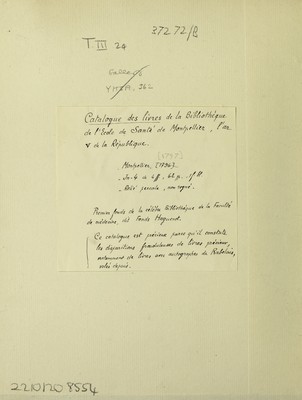 37272/B
T. III 24
Gallery
362
Catalogue des livres de la Bibliothèque
de l'Ecole de Santé de Montpellier, l'an
V de la République.
Montpellier, [1796]
Relié parch., non rogné.
Premier fonds de la célèbre Bibliothèque de la Faculté
de médecine, dit Fonds Haguenot.
Ce catalogue est précieux parce qu'il constate
les disparitions frauduleuses de livres précieux,
notamment de livres avec autographes de Rabelais,
volés depuis.
2210/20 8554